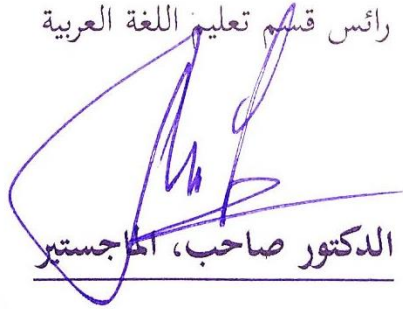 رائس قسم تعليم اللغة العربية
الدكتور صاحب، الماجستير